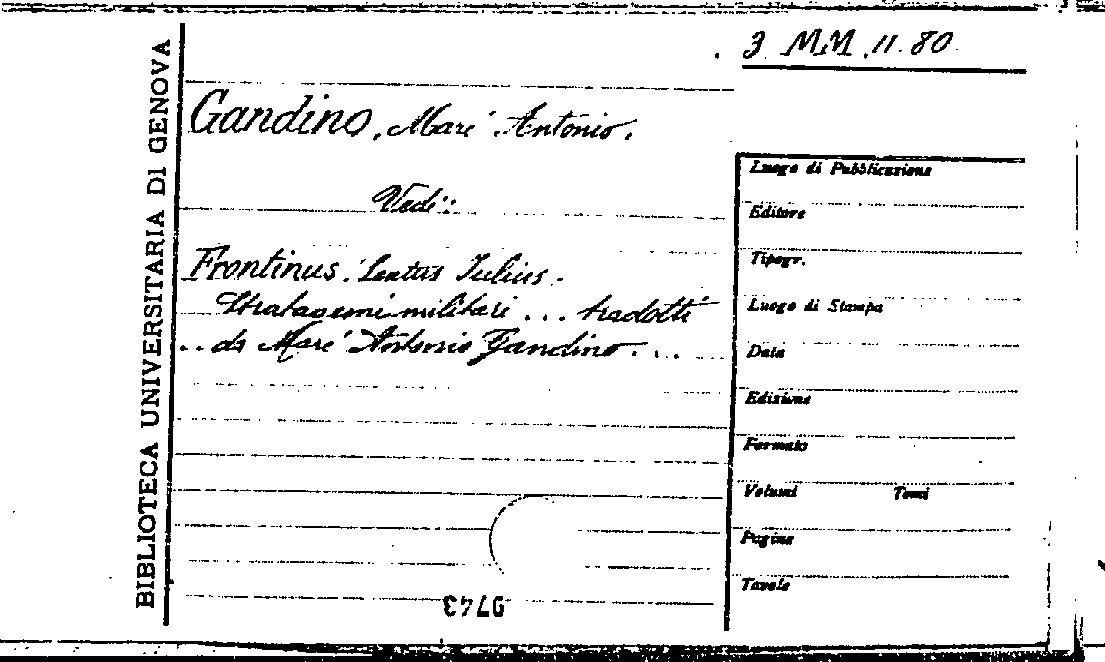 3 MM .11.80
BIBLIOTECA UNIVERSITARIA DI GENOVA
Gandino, Marc' Antonio.
Vedi:
Frontinus, Sextus Iulius.
Stratagemi militari ... tradotti
.. da Marc' Antonio Gandino ...
Luogo di Pubblicazione
Editore
Tipogr.
Luogo di Stampa
Data
Edizione
Formato
Volumi Tomi
Pagine
Tavole